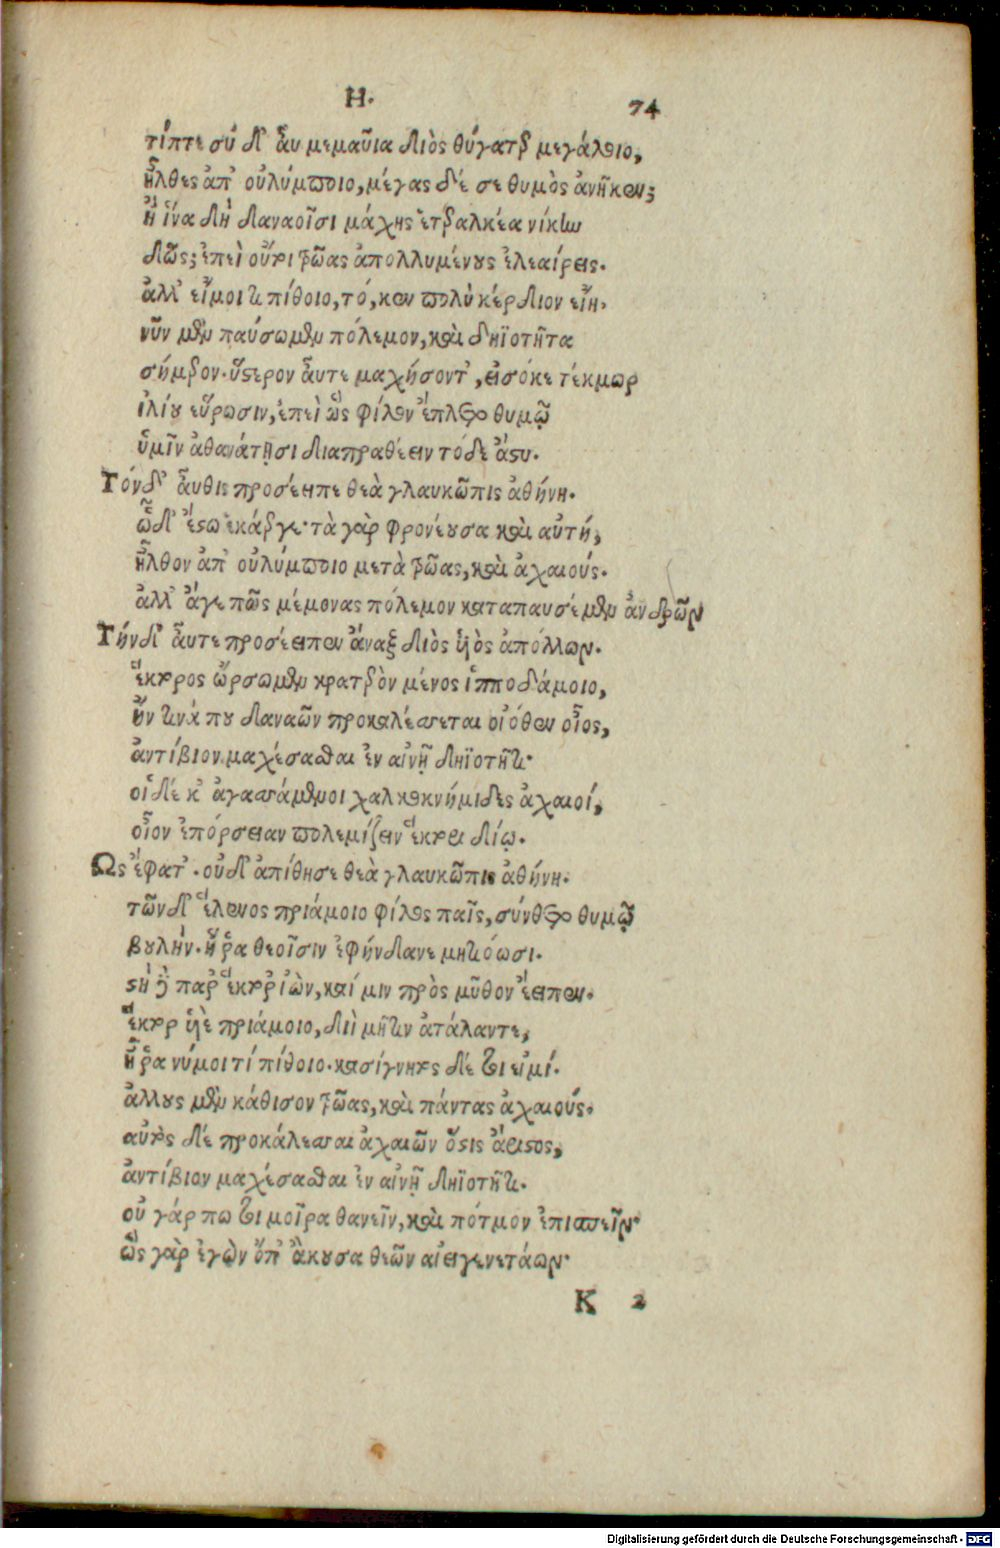 Η. 74
τίπτε σύ δ' ἂυ μεμαῦια διὸς θύγατερ μεγάλοιο,
ἦλθες ἀπ' οὐλύμποιο, μέγας δέ σε θυμὸς ἀνῆκεν;
ἦ ἵνα δὴ δαναοῖσι μάχης ἑτεραλκέα νίκην
δῶς; ἐπεὶ οὔτι τρῶας ἀπολλυμένους ἐλεαίρεις.
ἀλλ' εἴμοι τι πίθοιο, τό, κεν πολὺ κέρδιον εἴη.
νῦν μὲν παύσωμεν πόλεμον, καὶ δηϊοτῆτα
σήμερον. ὕστερον ἆυτε μαχήσοντ', εἰσόκε τέκμωρ
ἰλίου εὕρωσιν, ἐπεὶ ὣς φίλον ἔπλετο θυμῷ
ὑμῖν ἀθανάτῃσι διαπραθέειν τόδε ἄστυ.
Τόνδ' ἆυθις προσέειπε θεὰ γλαυκῶπις ἀθήνη.
ὧδ' ἔστω ἑκάεργε· τὰ γὰρ φρονέουσα καὶ αὐτή,
ἦλθον ἀπ' οὐλύμποιο μετὰ τρῶας, καὶ ἀχαιούς.
ἀλλ' ἄγε πῶς μέμονας πόλεμον καταπαυσέμεν ἀνδρῶν
Τήνδ' ἆυτε προσέειπεν ἄναξ διὸς ὑὸς ἀπόλλων.
ἕκτορος ὤρσωμεν κρατερὸν μένος ἱπποδάμοιο,
ἤν τινά που δαναῶν προκαλέσσεται οἰόθεν οἶος,
ἀντίβιον μαχέσασθαι ἐν αἰνῇ δηϊοτῆτι·
οἱ δέ κ' ἀγασσάμενοι χαλκοκνήμιδες ἀχαιοί,
οἶον ἐπόρσειαν πολεμίζειν ἕκτορι δίῳ.
Ως ἔφατ'. οὐδ' ἀπίθησε θεὰ γλαυκῶπις ἀθήνη.
τῶν δ' ἕλενος πριάμοιο φίλος παῖς, σύνθετο θυμῷ
βουλήν. ἥ ῥα θεοῖσιν ἐφήνδανε μητιόωσι.
στῆ δὲ παρ' ἕκτορ' ἰὼν, καί μιν πρὸς μῦθον ἔειπεν.
ἕκτορ ὑὲ πριάμοιο, διῒ μῆτιν ἀτάλαντε,
ἦ ῥα νύμοι τί πίθοιο. κασίγνητος δέ τοι εἰμί.
ἄλλους μὲν κάθισον τρῶας, καὶ πάντας ἀχαιούς.
αὐτὸς δέ προκάλεσσαι ἀχαιῶν ὅστις ἄριστος,
ἀντίβιον μαχέσασθαι ἐν αἰνῇ δηϊοτῆτι.
οὐ γάρ πω τοι μοῖρα θανεῖν, καὶ πότμον ἐπισπεῖν·
ὣς γὰρ ἐγὼν ὄπ' ἄκουσα θεῶν αἰειγενετάων·
K 2
Digitalisierung gefördert durch die Deutsche Forschungsgemeinschaft - DFG